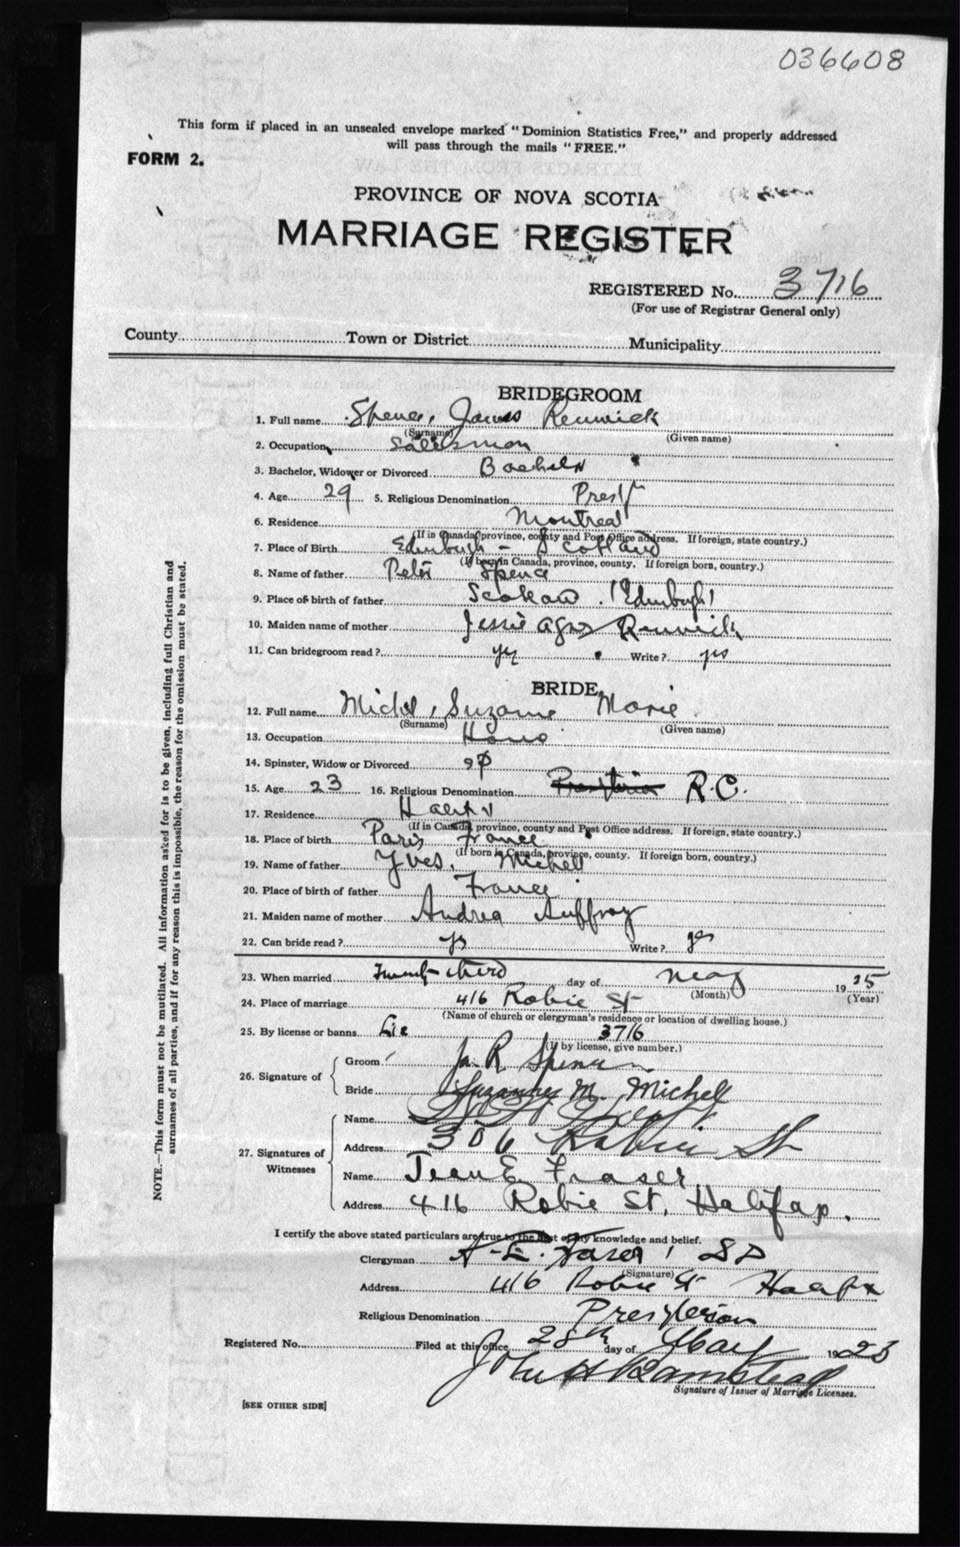 036608
This form if placed in an unsealed envelope marked "Dominion Statistics Free," and properly addressed
will pass through the mails "FREE."
FORM 2.
PROVINCE OF NOVA SCOTIA
MARRIAGE REGISTER
REGISTERED No. 3716
(For use of Registrar General only)
County Town or District Municipality
BRIDEGROOM
1. Full name Spence, James Renwick
(Surname) (Given name)
2. Occupation Salesman
3. Bachelor, Widower or Divorced Bachelor
4. Age 29 5. Religious Denomination Presby
6. Residence Montreal
(If in Canada, province, county and Post Office address. If foreign, state country.)
7. Place of Birth Edinburgh - Scotland
(If born in Canada, province, county. If foreign born, country.)
8. Name of father Peter Spence
9. Place of birth of father (Edinburgh)
10. Maiden name of mother Jessie Agnes Renwick
11. Can bridegroom read? yes Write? yes
BRIDE
12. Full name Michel, Suzanne Marie
(Surname) (Given name)
13. Occupation Home
14. Spinster, Widow or Divorced sp
15. Age 23 16. Religious Denomination R.C.
17. Residence Halifax
(If in Canada, province, county and Post Office address. If foreign, state country.)
18. Place of birth Paris France
(If born in Canada, province, county. If foreign born, country.)
19. Name of father Yves Michell
20. Place of birth of father France
21. Maiden name of mother Andrea Auffray
22. Can bride read? yes Write? yes
23. When married Twenty-third day of May 19
(Month) (Year)
24. Place of marriage 416 Robie St
(Name of church or clergyman's residence or location of dwelling house.)
25. By license or banns Lic 3716
(If by license, give number.)
26. Signature of Groom J. R. Spence
Bride Suzanne M. Michell
27. Signatures of Witnesses
Name
Address 306 Robie St
Name Jean E. Fraser
Address 416 Robie St, Halifax.
I certify the above stated particulars are true to the best of my knowledge and belief.
Clergyman Fraser
(Signature)
Address 416 Robie St Halifax
Religious Denomination Presbyterian
Registered No. Filed at this office 28th day of May 19
John H Barnstead
Signature of Issuer of Marriage Licenses.
[SEE OTHER SIDE]
NOTE.—This form must not be mutilated. All information asked for is to be given, including full Christian and
surnames of all parties, and if for any reason this is impossible, the reason for the omission must be stated.